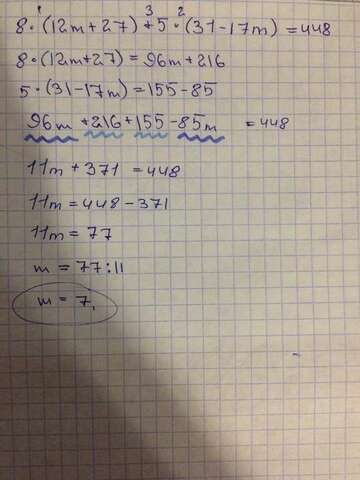 1 3 2
8·(12m+27)+5·(31-17m)=448
8·(12m+27)=96m+216
5·(31-17m)=155-85
96m+216+155-85m =448
11m+371=448
11m=448-371
11m=77
m=77:11
m=7,